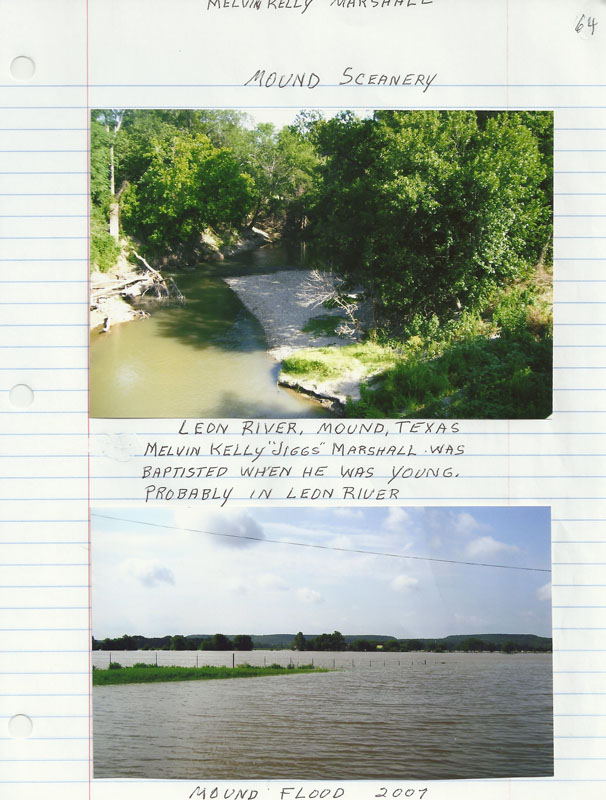 MELVIN KELLY MARSHALL
64
MOUND SCEANERY
LEON RIVER, MOUND, TEXAS
MELVIN KELLY "JIGGS" MARSHALL WAS
BAPTISTED WHEN HE WAS YOUNG.
PROBABLY IN LEON RIVER
MOUND FLOOD 2007